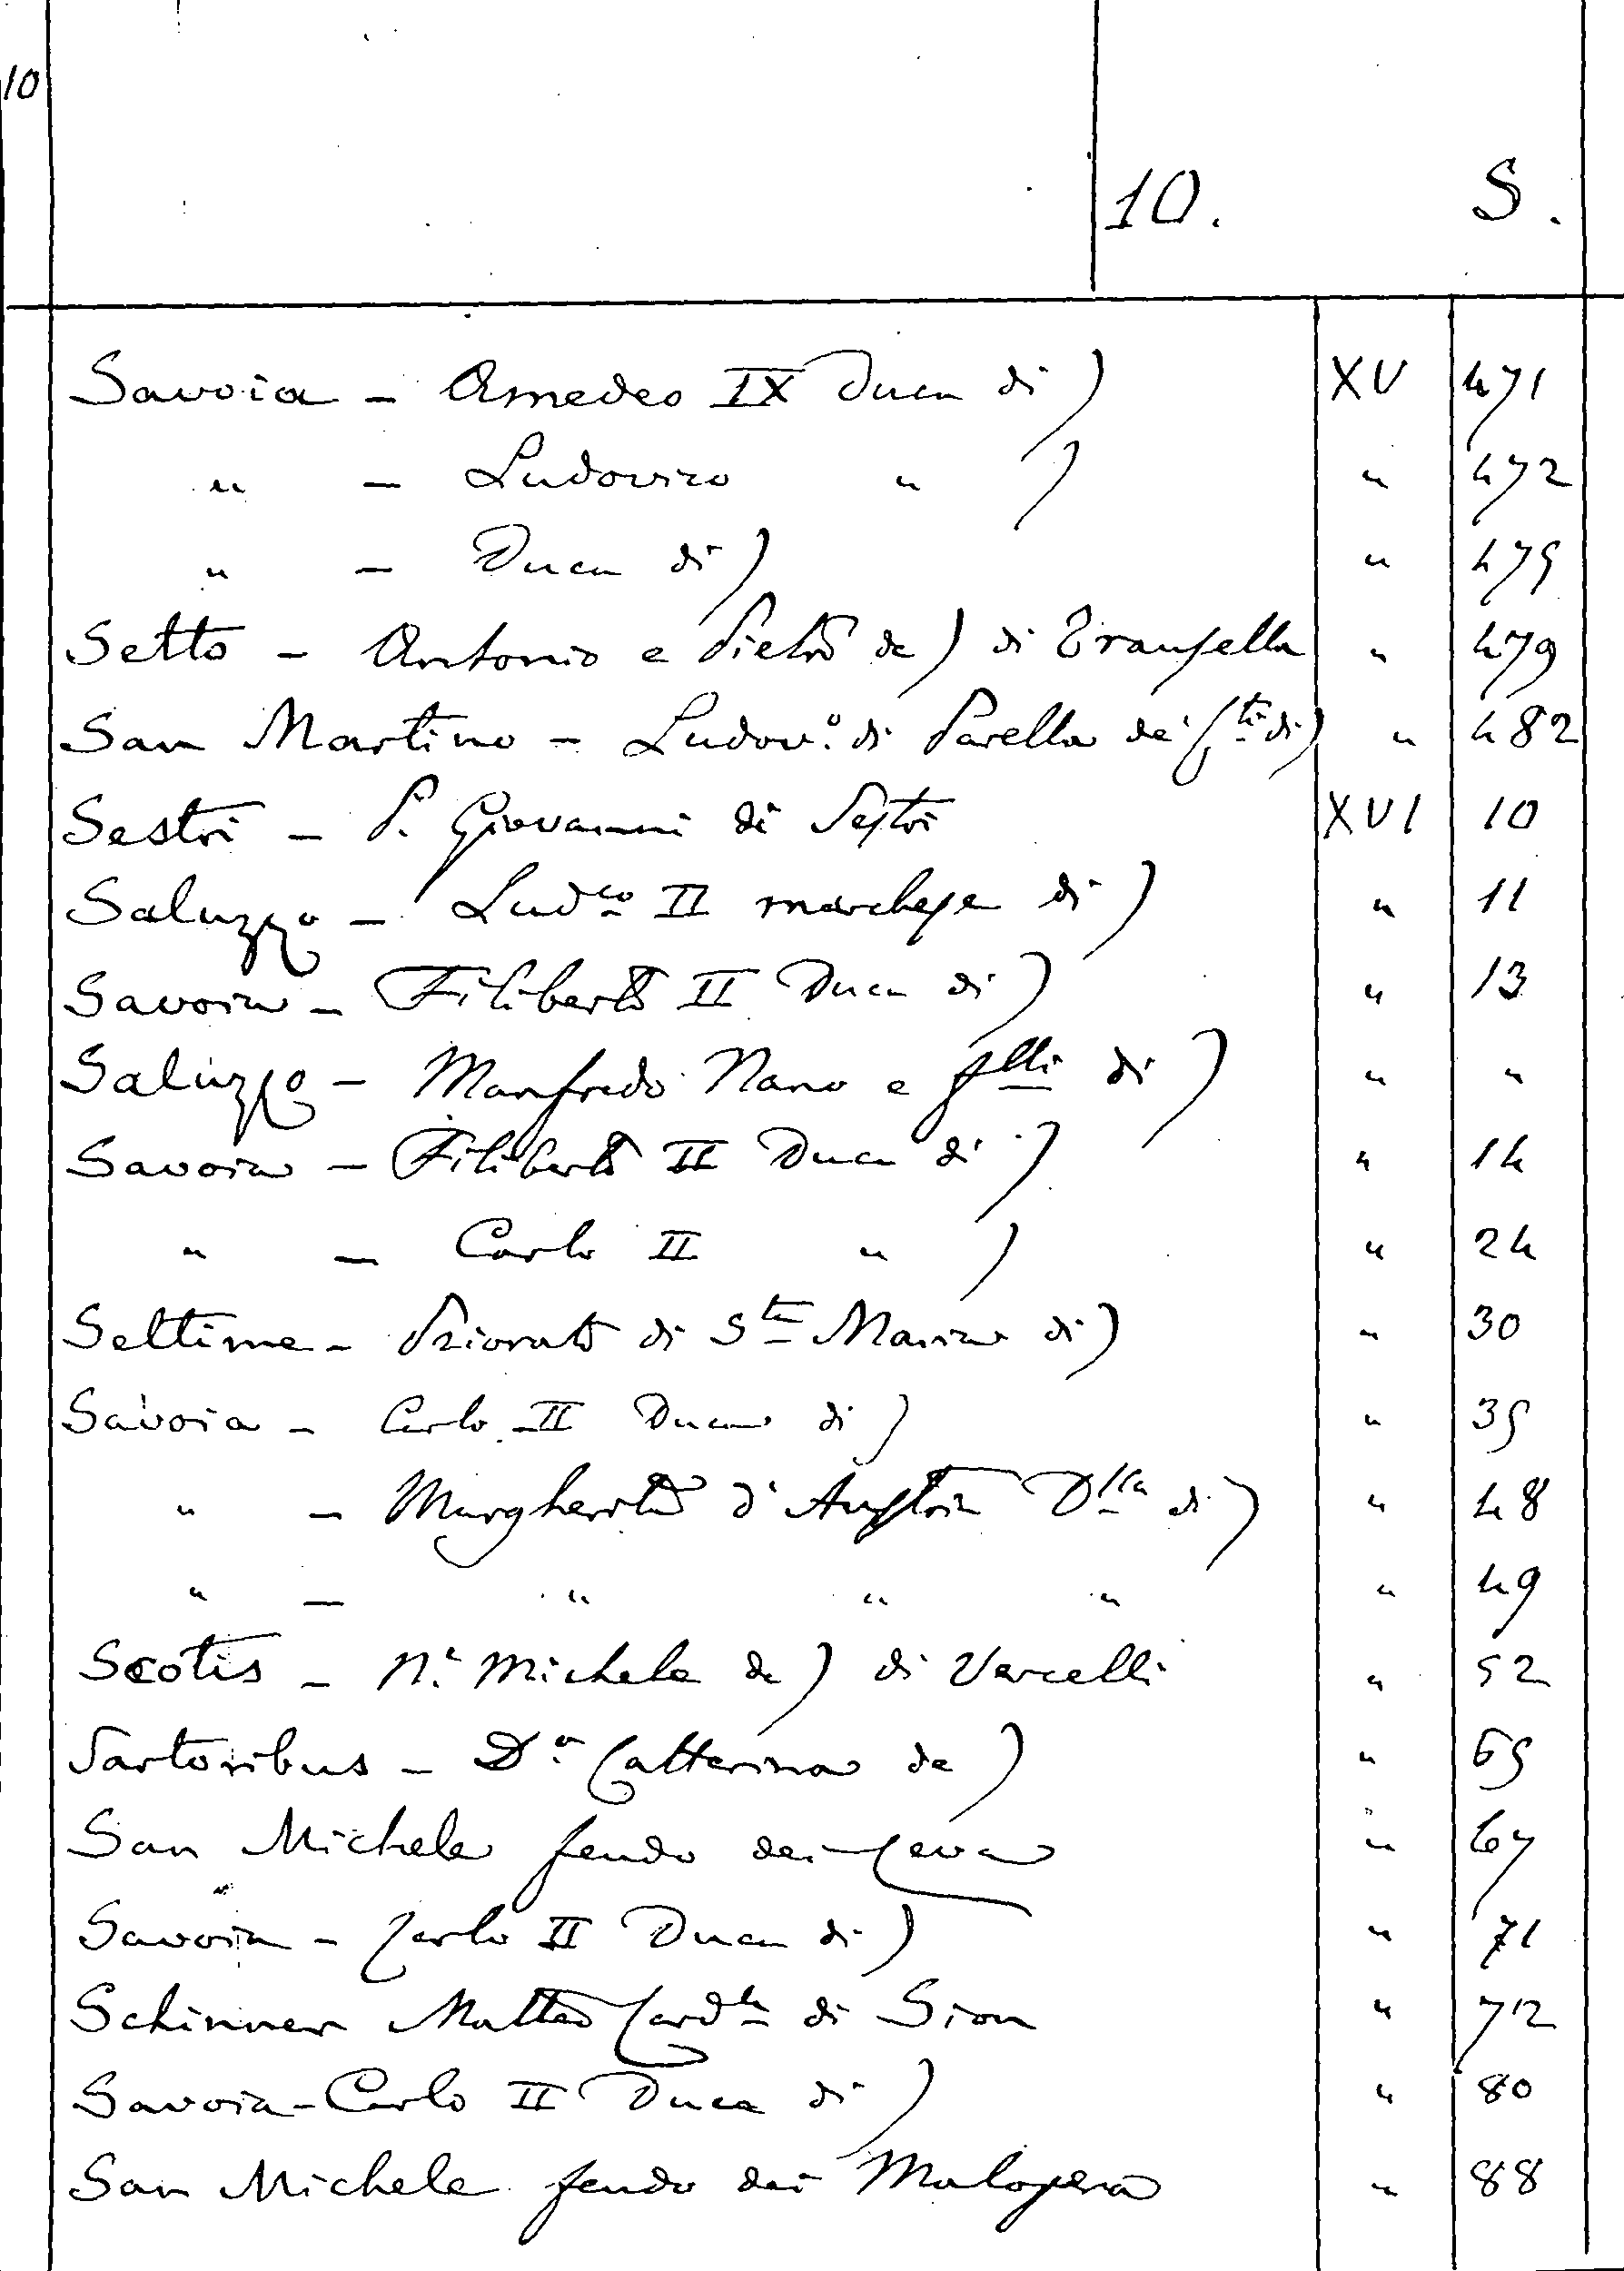 10
10. S.
Savoia - Amedeo IX Duca di) XV 471
" - Ludovico " ) " 472
" - Duca di) " 475
Setto - Antonio e Pietro de) di Trausella " 479
San Martino - Ludov.º di Parella de' Sti di) " 482
Sestri - S. Giovanni di Sestri XVI 10
Saluzzo - Ludco II marchese di) " 11
Savoia - Filiberto II Duca di) " 13
Saluzzo - Manfredo Nano e flli di) " "
Savoia - Filiberto II Duca di) " 14
" - Carlo II " ) " 24
Settime - Priorato di Sta Maria di) " 30
Savoia - Carlo II Duca di) " 35
" - Margherita d'Austria Dssa di) " 48
" - " " " " 49
Scotis - N.e Michele de) di Vercelli " 52
Sartoribus - D.a Catterina de) " 65
San Michele feudo dei Ceva " 67
Savoia - Carlo II Duca di) " 71
Schinner Matteo Cardle di Sion " 72
Savoia - Carlo II Duca di) " 80
San Michele feudo dei Malopera " 88